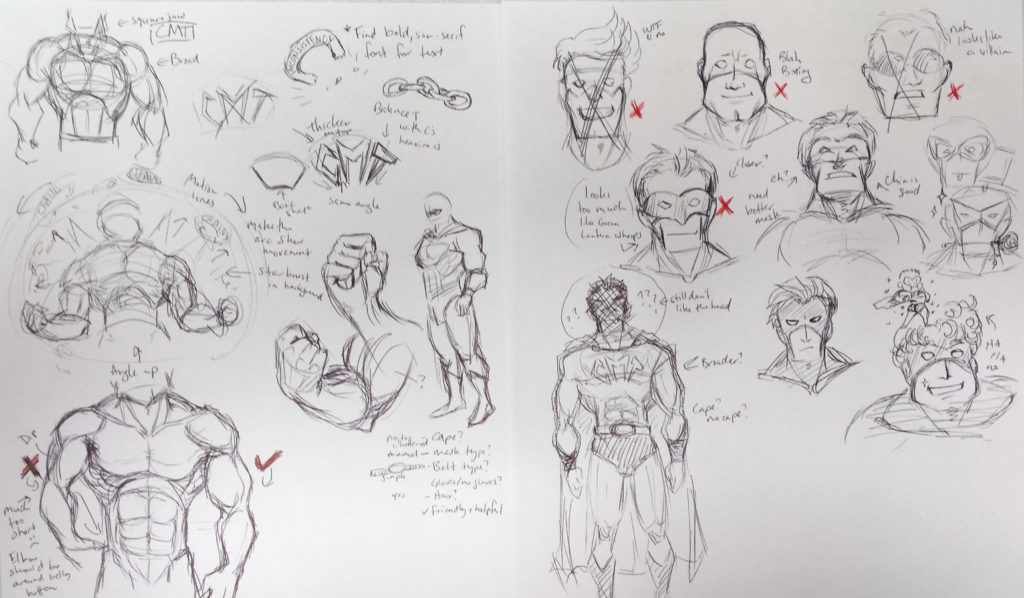 ← square jaw
CMT
← Broad
CONSISTENCY
* Find bold, san-serif
font for text
CMT
Balance T
with C's
heaviness
thicker
outer
CMT
Best
shape
semi-angle
Motion
lines
CHAIN
make the
arc show
movement
star burst
in background
Angle up
?
much
too
short
Elbow
should be
around belly
button
Cape?
no, too
cluttered
minimal — mask type?
simple
- Belt type?
- Glove/no gloves?
yes
- Hair?
✓ Friendly + helpful
WTF
Blah
Boring
nah
looks like
a villain
looks
too much
like Green
Lantern whoops
Closer?
need
better
mask
eh?
Chin is
good
???
??
still don't
like the head
← Broader?
Cape?
no cape?
HA
HA
no